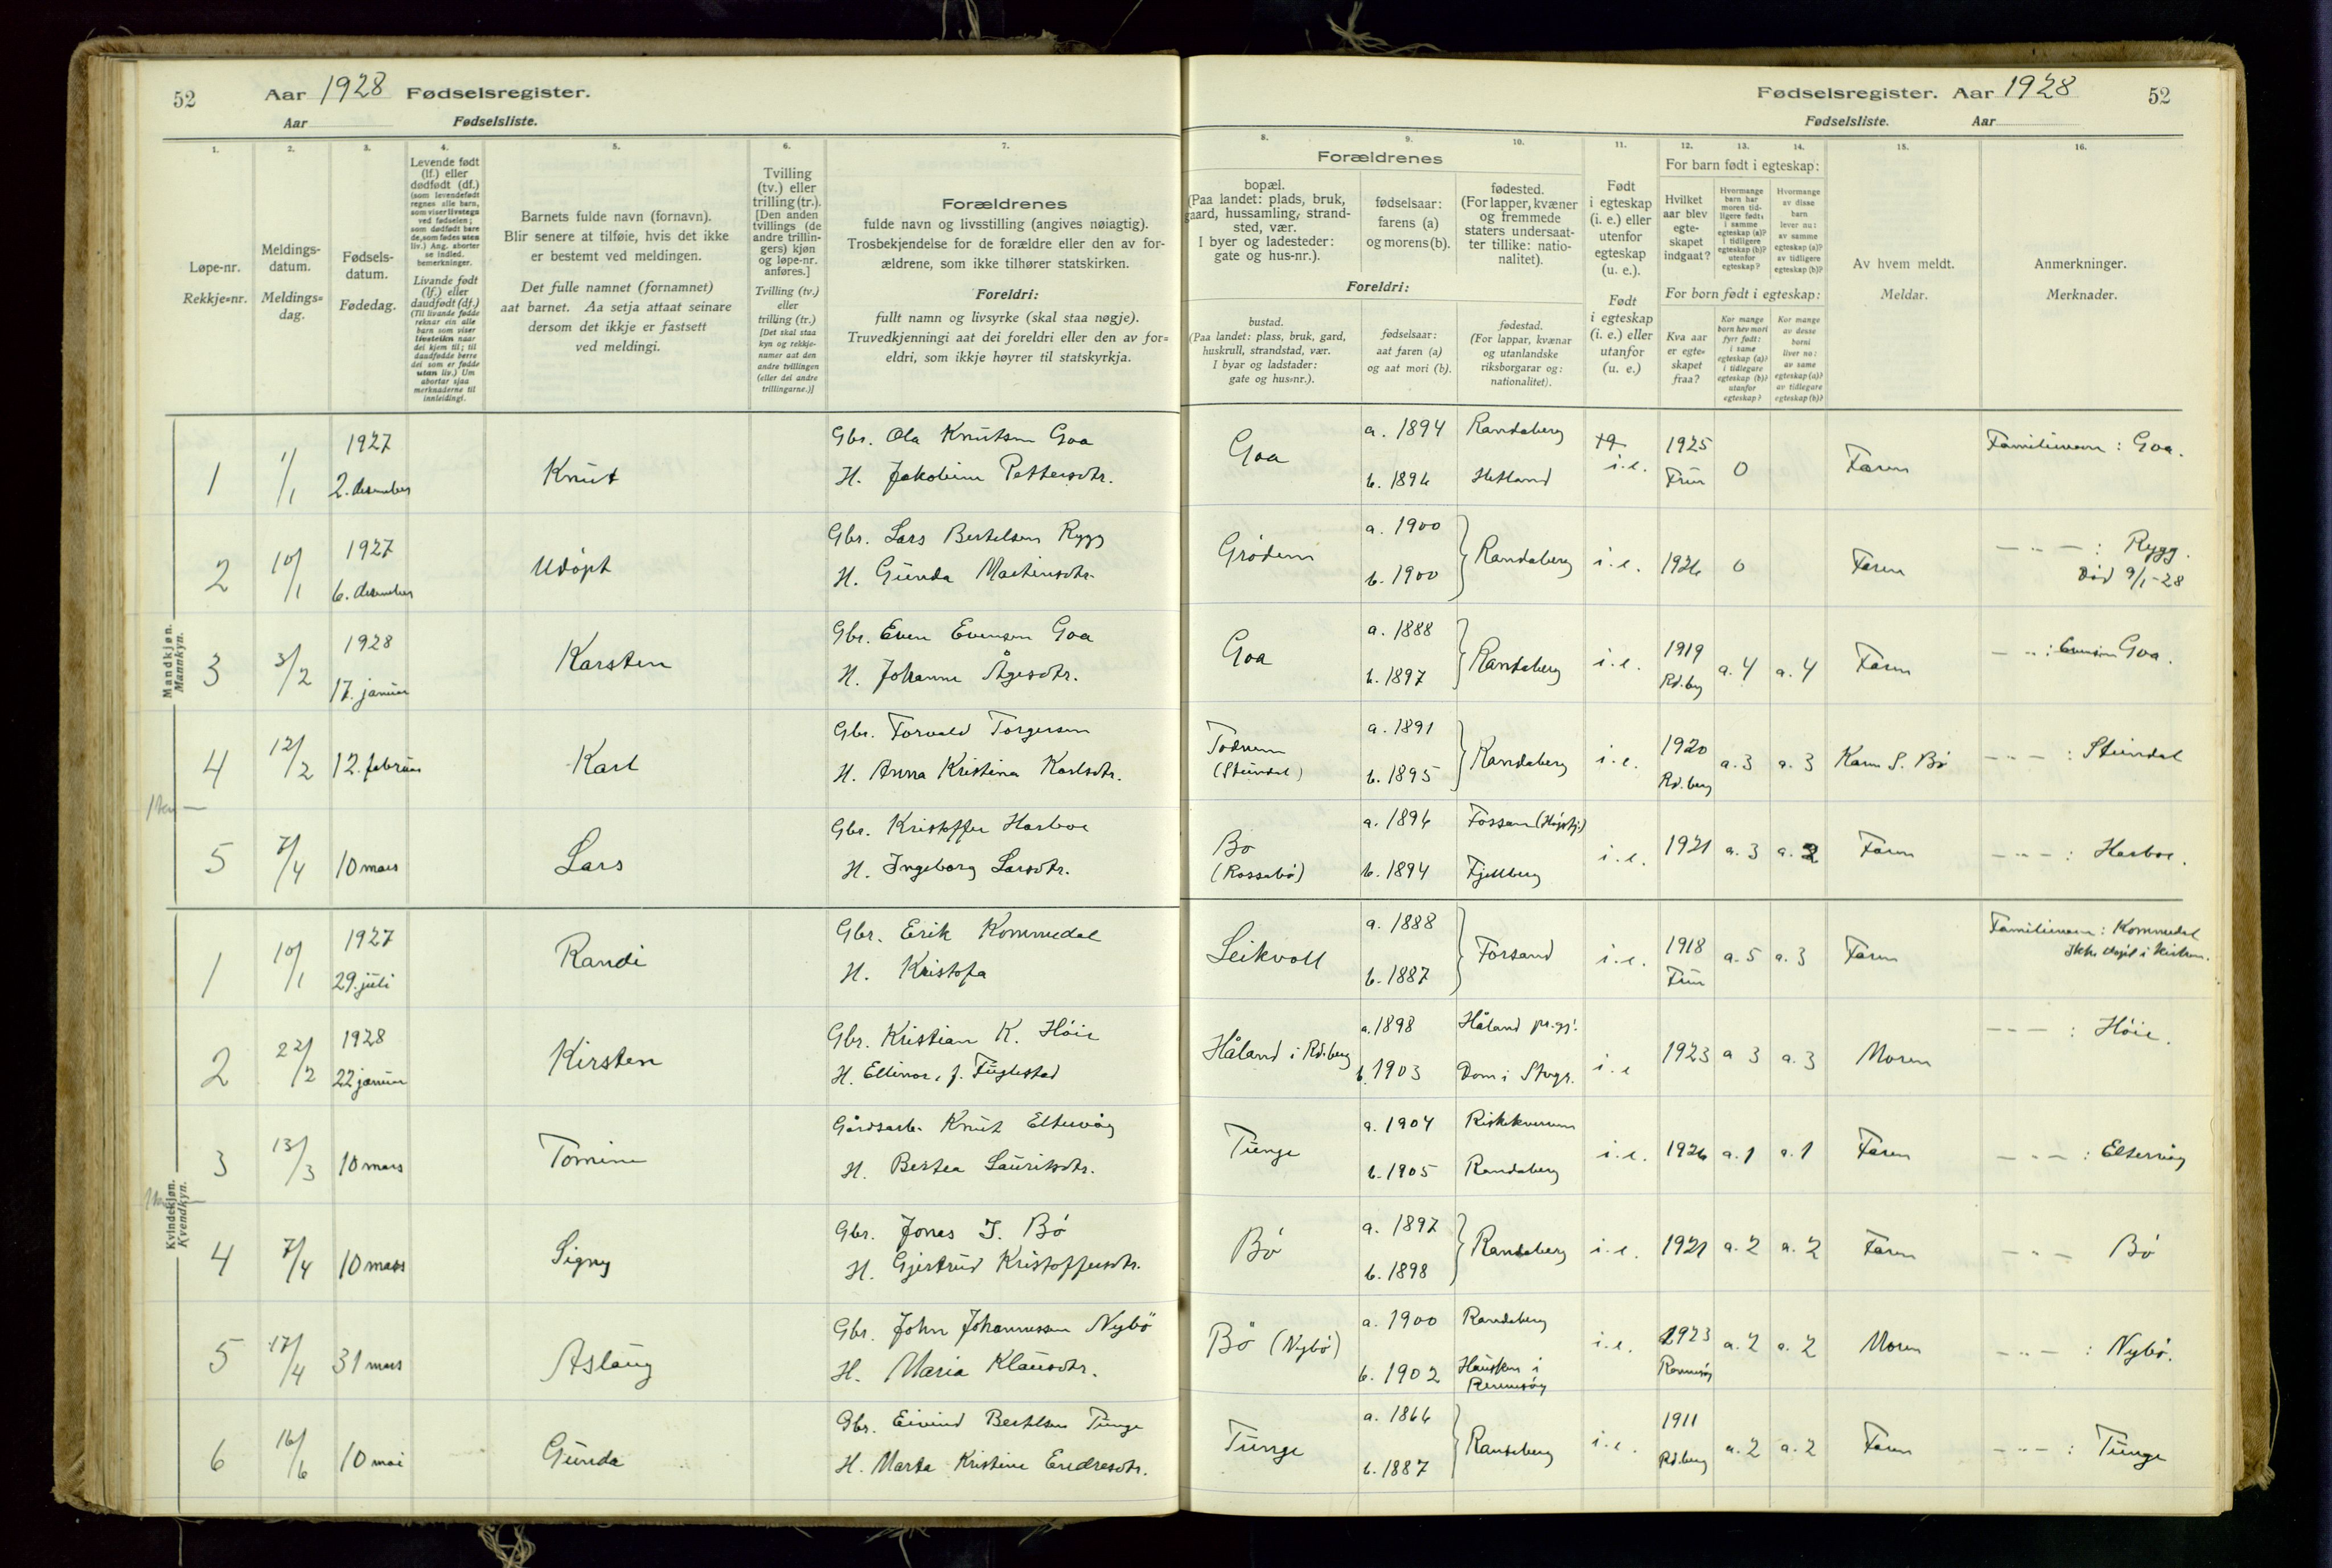 52
Aar 1928 Fødselsregister.
Aar Fødselsliste.
Fødselsregister. Aar 1928
52
Fødselsliste. Aar
1.
Løpe-nr.
Rekkje=nr.
2.
Meldings-
datum.
Meldings=
dag.
3.
Fødsels-
datum.
Fødedag.
4.
Levende født
(lf.) eller
dødfødt (df.)
(som levendefødt
regnes alle barn,
som viser livstegn
ved fødselen;
som dødfødt bare
de, som fødes uten
liv.) Ang. aborter
se indled.
bemerkninger.
Livande født
(lf.) eller
daudfødt (df.)
(Til livande fødde
reknar ein alle
barn som viser
livsteikn naar
dei kjem til; til
daudfødde berre
dei som er fødde
utan liv.) Um
abortar sjaa
merknaderne til
innleidingi.
5.
Barnets fulde navn (fornavn).
Blir senere at tilføie, hvis det ikke
er bestemt ved meldingen.
Det fulle namnet (fornamnet)
aat barnet. Aa setja attaat seinare
dersom det ikkje er fastsett
ved meldingi.
6.
Tvilling
(tv.) eller
trilling (tr.).
[Den anden
tvillings (de
andre trillin-
gers) kjøn
og løpe-nr.
anføres.]
Tvilling (tv.)
eller
trilling (tr.)
[Det skal staa
kyn og rekkje-
numer aat den
andre tvillingen
(eller dei andre
trillingarne.)]
7.
Forældrenes
fulde navn og livsstilling (angives nøiagtig).
Trosbekjendelse for de forældre eller den av for-
ældrene, som ikke tilhører statskirken.
Foreldri:
fullt namn og livsyrke (skal staa nøgje).
Truvedkjenningi aat dei foreldri eller den av for=
eldri, som ikkje høyrer til statskyrkja.
Forældrenes
8.
bopæl.
(Paa landet: plads, bruk,
gaard, hussamling, strand-
sted, vær.
I byer og ladesteder:
gate og hus-nr.).
9.
fødselsaar:
farens (a)
og morens (b).
10.
fødested.
(For lapper, kvæner
og fremmede
staters undersaat-
ter tillike: natio-
nalitet).
Foreldri:
bustad.
(Paa landet: plass, bruk, gard,
huskrull, strandstad, vær.
I byar og ladstader:
gate og hus=nr.).
fødselsaar:
aat faren (a)
og aat mori (b).
fødestad.
(For lappar, kvænar
og utanlandske
riksborgarar og:
nationalitet).
11.
Født
i egteskap
(i. e.) eller
utenfor
egteskap
(u. e.).
Født
i egteskap
(i. e.) eller
utanfor
(u. e.)
12. 13. 14.
For barn født i egteskap:
Hvilket
aar blev
egte-
skapet
indgaat?
Hvormange
barn har
moren tid-
ligere født:
i samme
egteskap (a)?
i tidligere
egteskap (b)?
utenfor
egteskap?
Hvormange
av disse
barn
lever nu:
av samme
egteskap (a)?
av tidligere
egteskap (b)?
For born født i egteskap:
Kva aar
er egte=
skapet
fraa?
Kor mange
born hev mori
fyrr født:
i same
egteskap (a)?
i tidlegare
egteskap (b)?
utanfor
egteskap?
Kor mange
av desse
borni
liver no:
av same
egteskap (a)?
av tidlegare
egteskap (b)?
15.
Av hvem meldt.
Meldar.
16.
Anmerkninger.
Merknader.
Mandkjøn.
Mannkyn.
1 1/1 1927 2. desember Knut Gbr. Ola Knutsen Goa
H. Jakobine Pettersdtr.
Goa a. 1894 Randaberg
b. 1896 Hetland
i.e. 1925 0 Faren Familienavn: Goa.
2 10/1 1927 6. desember Udöpt Gbr. Lars Bertelsen Rygg
H. Gunda Martinsdtr.
Grödem a. 1900 b. 1900 Randaberg i.e. 1926 0 Faren — " — : Rygg.
Död 9/1-28
3 3/2 1928 17. januar Karsten Gbr. Even Evensen Goa
H. Johanne Ågesdtr.
Goa a. 1888 b. 1897 Randaberg i.e. 1919 Rd.berg a. 4 a. 4 Faren — " — : Evensen Goa.
4 12/2 12. februar Karl Gbr. Torvald Torgersen
H. Anna Kristina Karlsdtr.
Todnem (Steindal) a. 1891 b. 1895 Randaberg i.e. 1920 Rd.berg a. 3 a. 3 Karen S. Bö — " — : Steindal
5 7/4 10 mars Lars Gbr. Kristoffer Hasboe
H. Ingeborg Larsdtr.
Bö a. 1896
b. 1894 Fjellberg
i.e. 1921 a. 3 a. 2 Faren — " — : Hasboe.
Kvindekjøn.
Kvendkyn.
1 10/1 1927 29. juli Randi Gbr. Erik Kommedal
H. Kristofa
Leikvoll a. 1888 b. 1887 Forsand i.e. 1918 a. 5 a. 3 Faren Familienavn: Kommedal
2 22/2 1928 22 januar Kirsten Gbr. Kristian K. Höie
H. Ellinor, f. Fuglestad
Håland i Rd.berg a. 1898 Håland pr.gj.
b. 1903 Dom i Stvgr.
i.e 1923 a 3 a. 3 Moren — " — : Höie.
3 13/3 10 mars Tomine Gårdsarb. Knut Eltervåg
H. Bertea Lauritsdtr.
Tunge a. 1904
b. 1905 Randaberg
i.e. 1926 a. 1 a. 1 Faren — " — : Eltervåg
4 7/4 10 mars Signy Gbr. Jonas J. Bö
H. Gjertrud Kristoffersdtr.
Bö a. 1897 b. 1898 Randaberg i.e. 1921 a. 2 a. 2 Faren — " — Bö
5 17/4 31 mars Aslaug Gbr. John Johannessen Nybö
H. Maria Klausdtr.
Bö (Nybö) a. 1900 Randaberg
b. 1902 Hausken i Rennesöy
i.e. 1923 Rennesöy a. 2 a. 2 Moren — " — : Nybö.
6 16/6 10 mai Gunda Gbr. Eivind Bertelsen Tunge
H. Marta Kristine Endresdtr.
Tunge a. 1866 b. 1887 Randaberg i.e. 1911 Rd.berg a. 2 a. 2 Faren — " — : Tunge